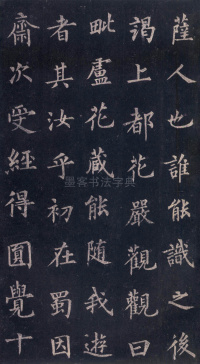 薩人也誰能識之後
謁上都花嚴觀觀曰
毗盧花藏能隨我遊
者其汝乎初在蜀因
齋次受經得圓覺十
墨客书法字典